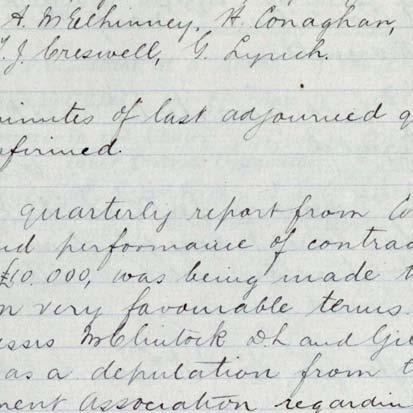 A. McElhinney, H. Conaghan,
T. J. Creswell, G. Lynch.
minutes of last adjourned q
nfirmed.
quarterly report from Co
nd performance of contrac
£10.000, was being made t
n very favourable terms
essrs McClintock D.L and Gi
as a deputation from t
ment Association regardin